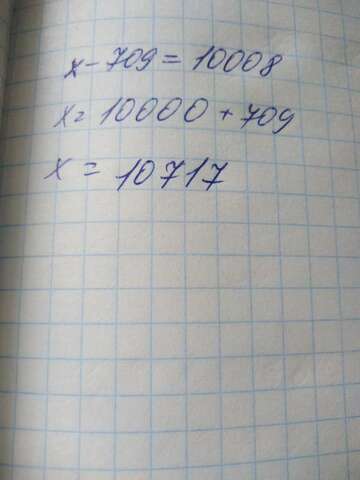 x - 709 = 10008
x = 10000 + 709
x = 10717